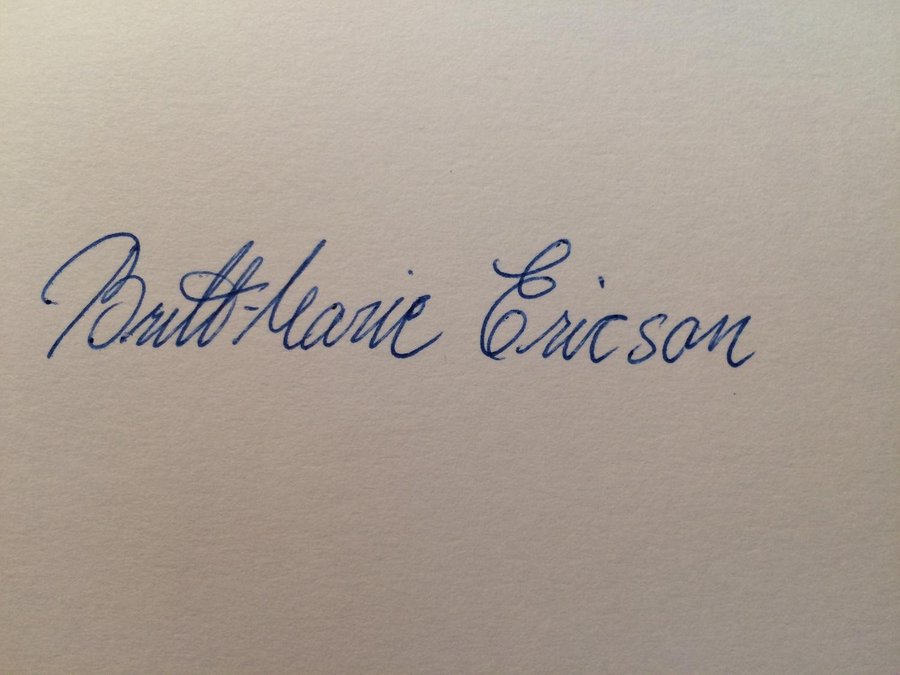 Britt-Marie Ericson